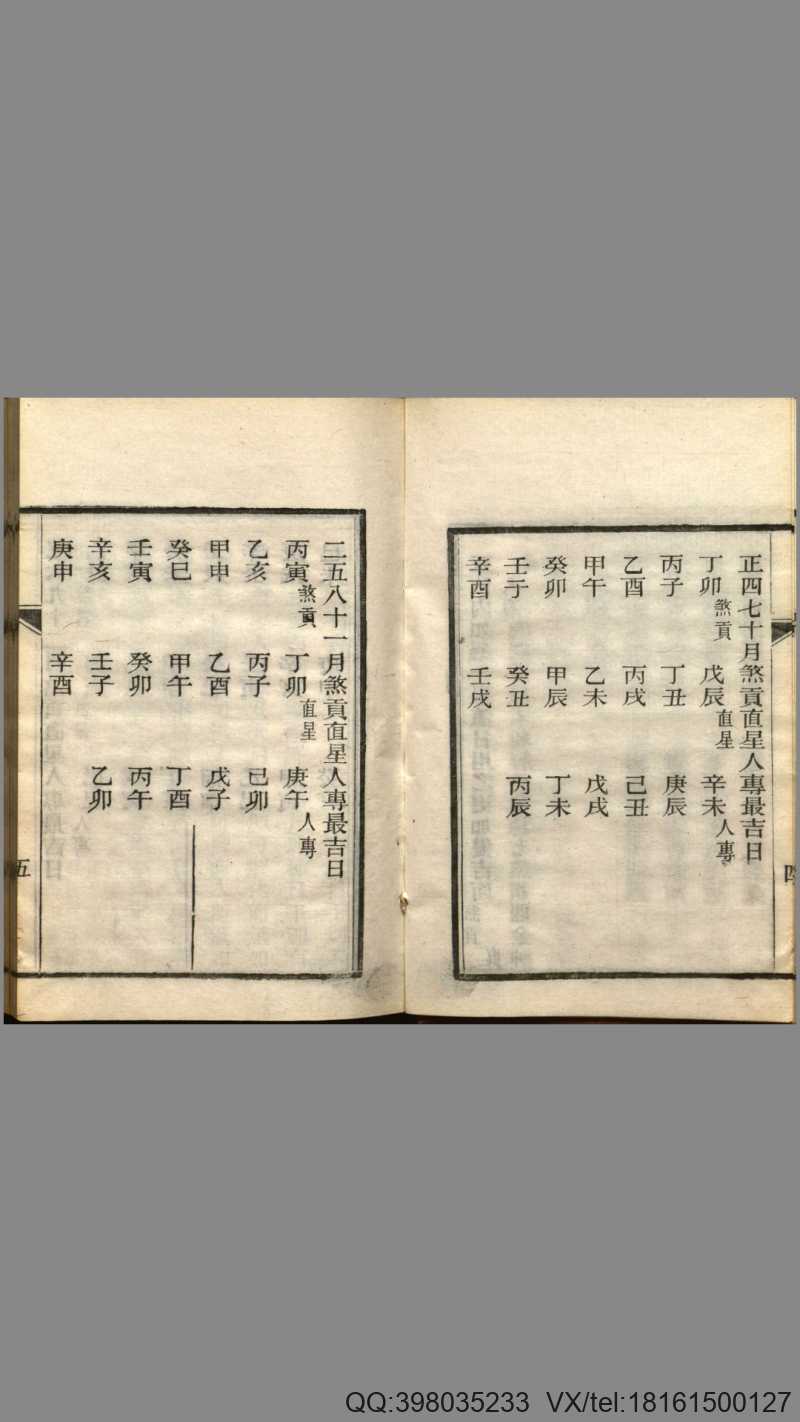 正四七十月煞貢直星人專最吉日
丁卯煞貢 戊辰直星 辛未人專
丙子 丁丑 庚辰
乙酉 丙戌 己丑
甲午 乙未 戊戌
癸卯 甲辰 丁未
壬子 癸丑 丙辰
辛酉 壬戌
二五八十一月煞貢直星人專最吉日
丙寅煞貢 丁卯直星 庚午人專
乙亥 丙子 己卯
甲申 乙酉 戊子
癸巳 甲午 丁酉
壬寅 癸卯 丙午
辛亥 壬子 乙卯
庚申 辛酉
五
QQ:398035233 VX/tel:18161500127